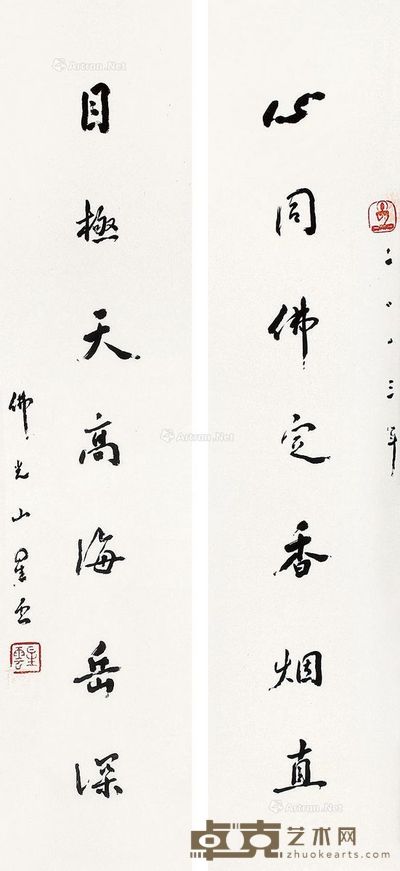 心同佛定香烟直
二〇〇三年
目極天高海岳深
佛光山星云
星雲
Artron.Net
Artron.Net
Artron.Net
Artron.Net
卓克艺术网
zhuokearts.com